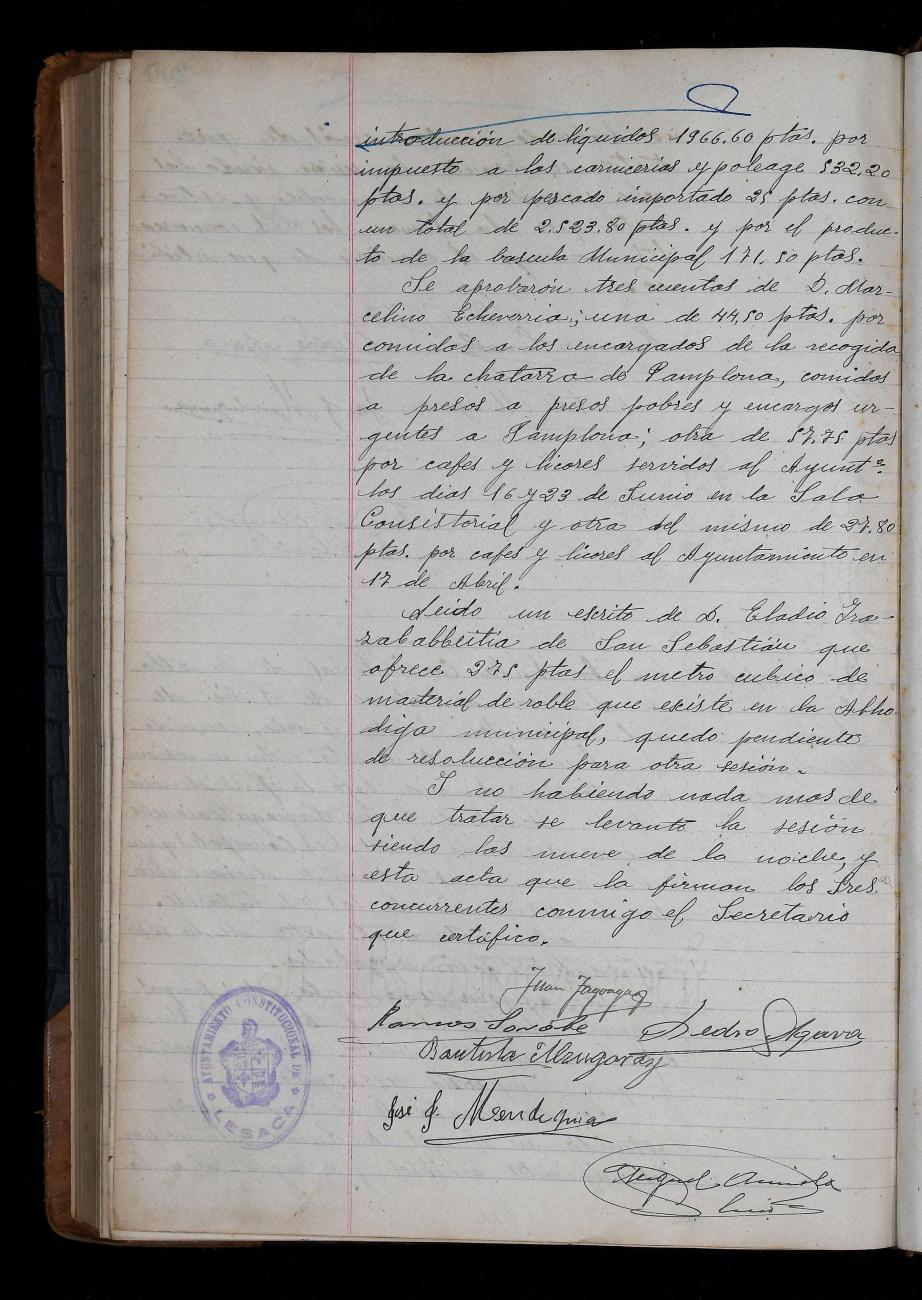 introducción de líquidos 1966.60 ptas. por
impuesto a las carnicerias y poleage 532,20
ptas. y por pescado importado 25 ptas. con
un total de 2.523.80 ptas. y por el produc-
to de la bascula Municipal 171.50 ptas.
Se aprobaron tres cuentas de D. Mar-
celino Echeverria; una de 44,50 ptas. por
comidas a los encargados de la recogida
de la chatarra de Pamplona, comidas
a presos a presos pobres y encargos ur-
gentes a Pamplona; otra de 57.75 ptas
por cafes y licores servidos al Ayuntº.
los dias 16 y 23 de Junio en la Sala
Consistorial y otra del mismo de 27.80
ptas. por cafes y licores al Ayuntamiento en
17 de Abril.
Leido un escrito de D. Eladio Ira-
zababbeitia de San Sebastián que
ofrece 275 ptas el metro cubico de
material de roble que existe en la Alho
diga municipal, quedo pendiente
de resolucción para otra sesión.
Y no habiendo nada mas de
que tratar se levanto la sesión
siendo las nueve de la noche, y
esta acta que la firman los Sres.
concurrentes conmigo el Secretario
que certifico.
Juan
Ramos Pedro
Bautista
José J. Mendiguia
Miguel
AYUNTAMIENTO CONSTITUCIONAL DE
LESACA